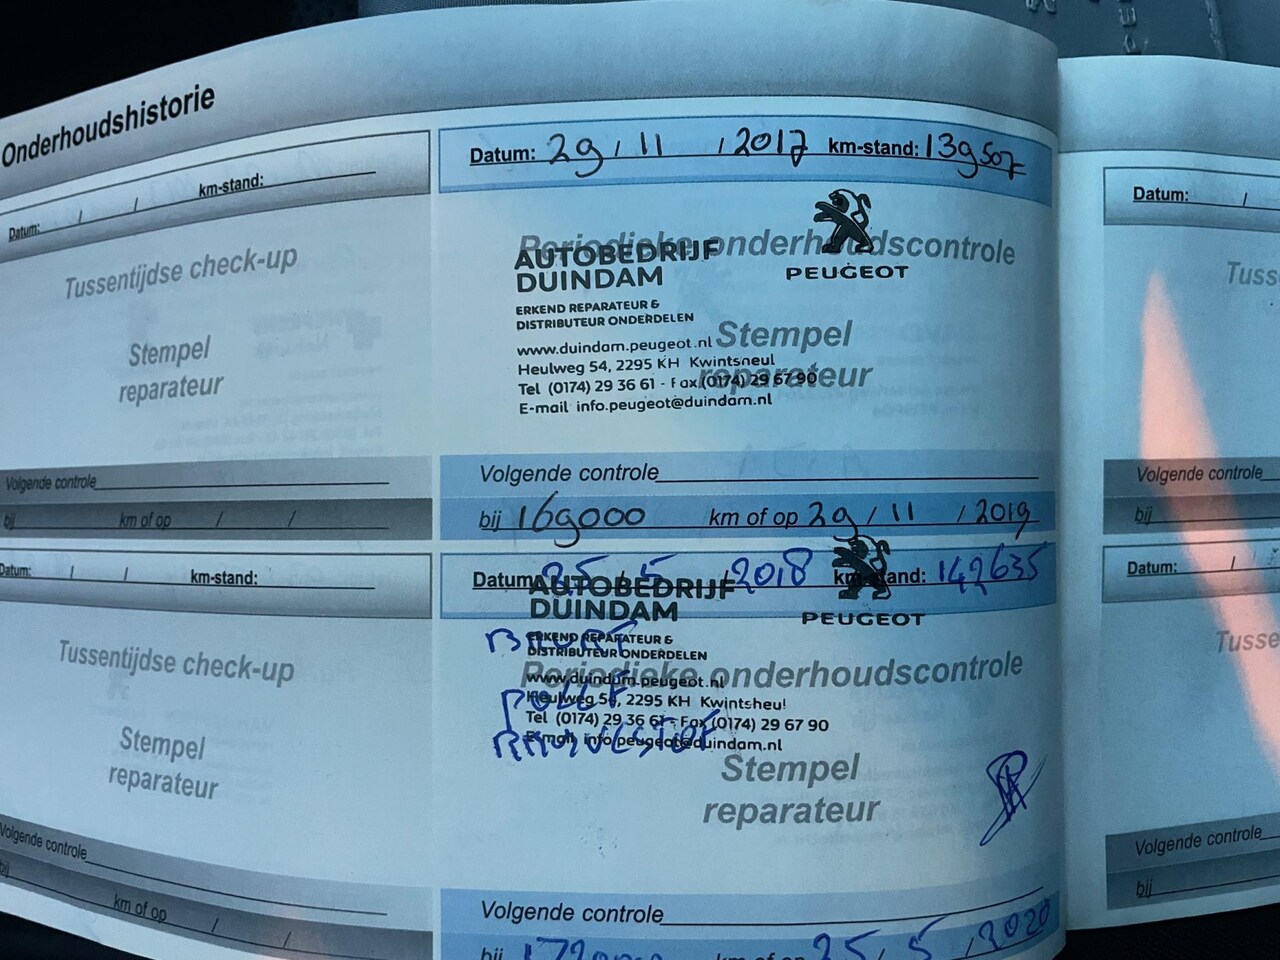 Onderhoudshistorie
Datum: / / km-stand:
Tussentijdse check-up
Stempel
reparateur
Volgende controle
bij km of op / /
Datum: / / km-stand:
Tussentijdse check-up
Stempel
reparateur
Volgende controle
bij km of op / /
Datum: 29 / 11 / 2017 km-stand: 139507
Periodieke onderhoudscontrole
AUTOBEDRIJF
DUINDAM
PEUGEOT
ERKEND REPARATEUR &
DISTRIBUTEUR ONDERDELEN
Stempel
reparateur
www.duindam.peugeot.nl
Heulweg 54, 2295 KH Kwintsheul
Tel (0174) 29 36 61 - Fax (0174) 29 67 90
E-mail info.peugeot@duindam.nl
Volgende controle
bij 169000 km of op 29 / 11 / 2019
Datum 25 / 5 / 2018 km-stand: 142635
AUTOBEDRIJF
DUINDAM
PEUGEOT
ERKEND REPARATEUR &
DISTRIBUTEUR ONDERDELEN
Periodieke onderhoudscontrole
www.duindam.peugeot.nl
Heulweg 54, 2295 KH Kwintsheul
Tel (0174) 29 36 61 - Fax (0174) 29 67 90
E-mail info.peugeot@duindam.nl
Stempel
reparateur
Volgende controle
bij km of op 25 / 5 / 2020
Datum: /
Tuss
Volgende controle
bij
Datum: /
Tusse
Volgende controle
bij